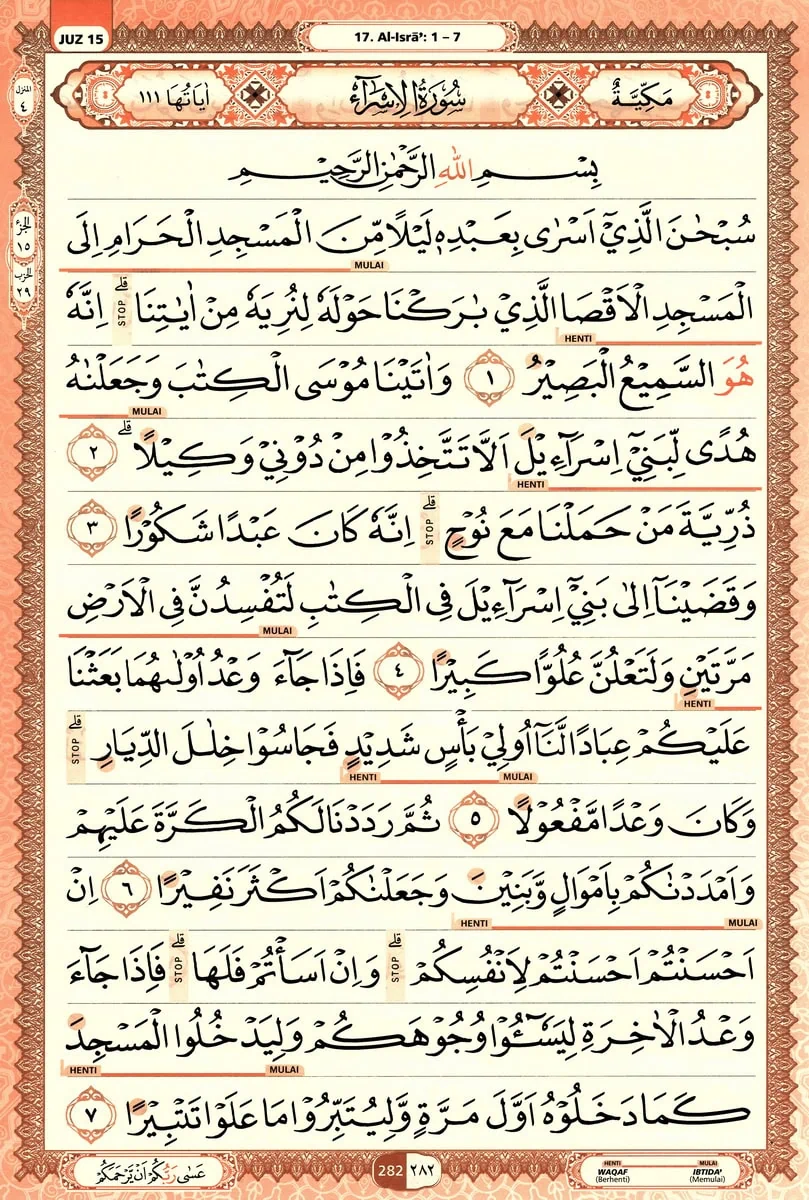 JUZ 15
17. Al-Isrā': 1 – 7
المنزل
٤
مَكِّيَّةٌ
سُوْرَةُ الْاِسْرَاۤءِ
اٰيَاتُهَا ١١١
بِسْمِ اللّٰهِ الرَّحْمٰنِ الرَّحِيْمِ
الجزء
١٥
الحزب
٢٩
سُبْحٰنَ الَّذِيْٓ اَسْرٰى بِعَبْدِهٖ لَيْلًا مِّنَ الْمَسْجِدِ الْحَرَامِ اِلَى
MULAI
الْمَسْجِدِ الْاَقْصَا الَّذِيْ بٰرَكْنَا حَوْلَهٗ لِنُرِيَهٗ مِنْ اٰيٰتِنَاۗ اِنَّهٗ
STOP
HENTI
هُوَ السَّمِيْعُ الْبَصِيْرُ ١ وَاٰتَيْنَا مُوْسَى الْكِتٰبَ وَجَعَلْنٰهُ
MULAI
هُدًى لِّبَنِيْٓ اِسْرَاۤءِيْلَ اَلَّا تَتَّخِذُوْا مِنْ دُوْنِيْ وَكِيْلًاۗ ٢
HENTI
ذُرِّيَّةَ مَنْ حَمَلْنَا مَعَ نُوْحٍۗ اِنَّهٗ كَانَ عَبْدًا شَكُوْرًا ٣
STOP
وَقَضَيْنَآ اِلٰى بَنِيْٓ اِسْرَاۤءِيْلَ فِى الْكِتٰبِ لَتُفْسِدُنَّ فِى الْاَرْضِ
MULAI
مَرَّتَيْنِ وَلَتَعْلُنَّ عُلُوًّا كَبِيْرًا ٤ فَاِذَا جَاۤءَ وَعْدُ اُوْلٰىهُمَا بَعَثْنَا
HENTI
عَلَيْكُمْ عِبَادًا لَّنَآ اُولِيْ بَأْسٍ شَدِيْدٍ فَجَاسُوْا خِلٰلَ الدِّيَارِۗ
STOP
MULAI HENTI
وَكَانَ وَعْدًا مَّفْعُوْلًا ٥ ثُمَّ رَدَدْنَا لَكُمُ الْكَرَّةَ عَلَيْهِمْ
وَاَمْدَدْنٰكُمْ بِاَمْوَالٍ وَّبَنِيْنَ وَجَعَلْنٰكُمْ اَكْثَرَ نَفِيْرًا ٦ اِنْ
MULAI HENTI
اَحْسَنْتُمْ اَحْسَنْتُمْ لِاَنْفُسِكُمْۗ وَاِنْ اَسَأْتُمْ فَلَهَاۗ فَاِذَا جَاۤءَ
STOP STOP
وَعْدُ الْاٰخِرَةِ لِيَسٗۤـُٔوْا وُجُوْهَكُمْ وَلِيَدْخُلُوا الْمَسْجِدَ
MULAI HENTI
كَمَا دَخَلُوْهُ اَوَّلَ مَرَّةٍ وَّلِيُتَبِّرُوْا مَا عَلَوْا تَتْبِيْرًا ٧
عَسٰى رَبُّكُمْ اَنْ يَّرْحَمَكُمْ
282 ٢٨٢
HENTI MULAI
WAQAF IBTIDA'
(Berhenti) (Memulai)